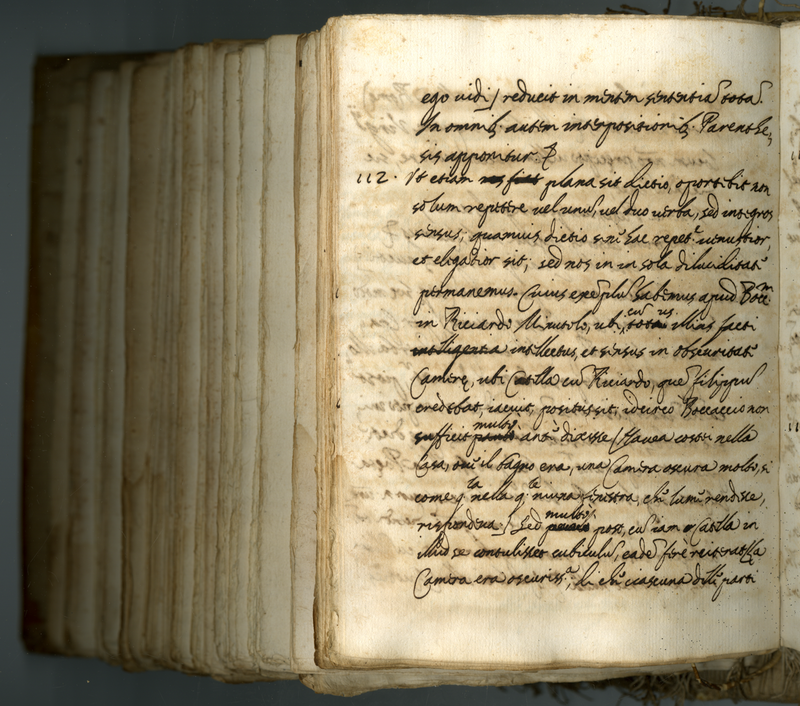 ego uidi / reducit in mentem sententiã totã.
In omnib. autem interpositionib. Parenthe,
sis apponitur.
112. Vt etiam plana sit dictio, oportebit non
solum repetere uel unũ, uel duo uerba, sed integros
sensus; quamuis dictio sine hac repet.e uenustior,
et elegãtior sit; sed nos in in sola dilucilitate
permanemus. Cuius exẽplũ habemus apud Bocc.m
in Ricciardo Minutolo, ubi, cũ totus illius facti
intelligentia intellectus, et sensus in obscuritate
Camere, ubi Catella cũ Ricciardo, quẽ filippũ
credebat, iacuit, positus sit, idcirco Boccaccio non
sufficit multo ante dicesse / Hauea costei nella
Casa, oue il bagno era, una Camera oscura molto, si
come q.la nella q.le niuna finestra, che lume rendisse,
rispondeua / sed multo post, cũ iam Catella in
illud se contulisset cubiculũ, eadẽ ferè reiterat /La
Camera era oscuriss.a, di che ciascuna delle parti